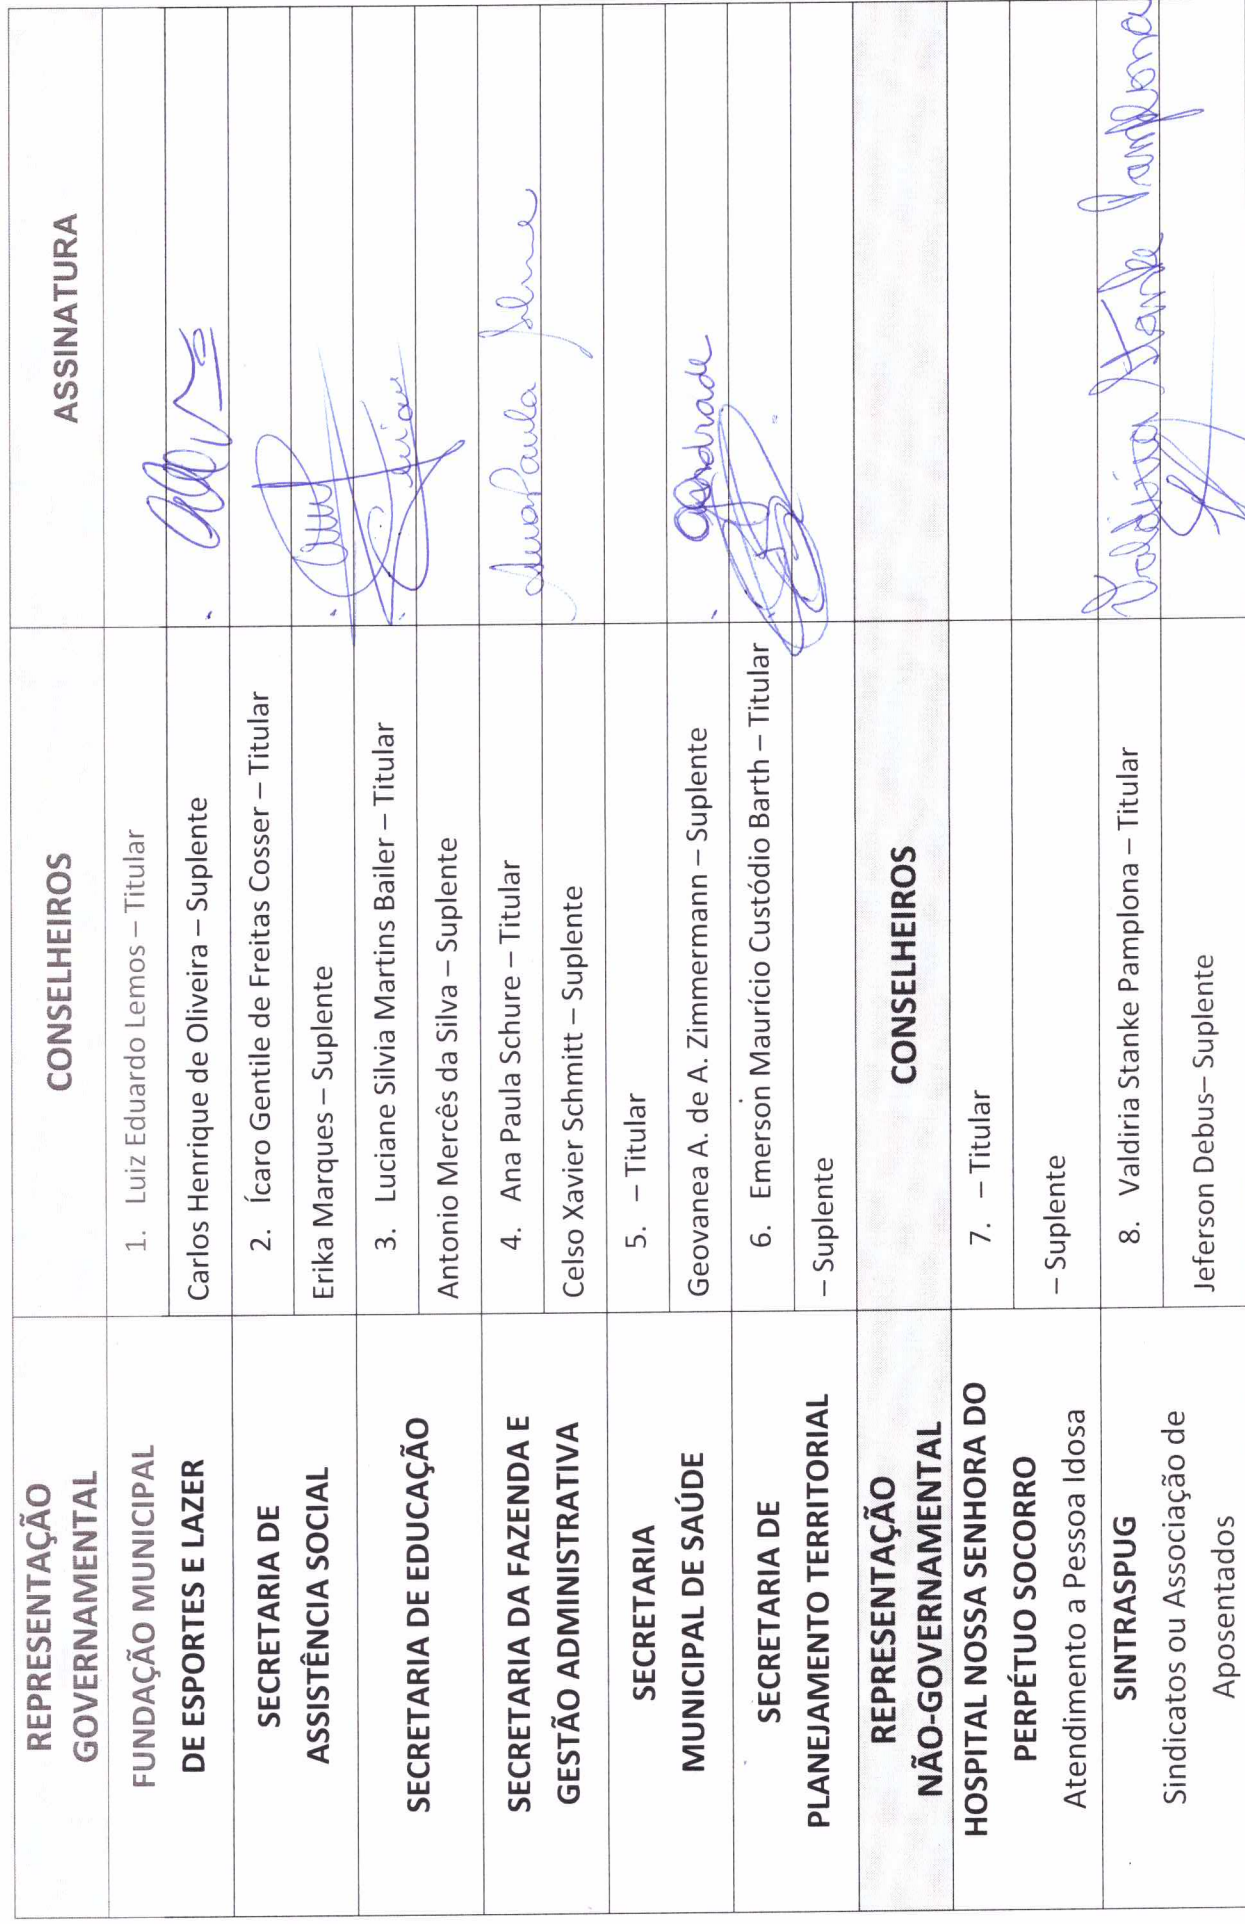 REPRESENTAÇÃO
GOVERNAMENTAL
CONSELHEIROS
ASSINATURA
FUNDAÇÃO MUNICIPAL
DE ESPORTES E LAZER
1. Luiz Eduardo Lemos – Titular
Carlos Henrique de Oliveira – Suplente
SECRETARIA DE
ASSISTÊNCIA SOCIAL
2. Ícaro Gentile de Freitas Cosser – Titular
Erika Marques – Suplente
SECRETARIA DE EDUCAÇÃO
3. Luciane Silvia Martins Bailer – Titular
Antonio Mercês da Silva – Suplente
SECRETARIA DA FAZENDA E
GESTÃO ADMINISTRATIVA
4. Ana Paula Schure – Titular
Ana Paula
Celso Xavier Schmitt – Suplente
SECRETARIA
MUNICIPAL DE SAÚDE
5. – Titular
Geovanea A. de A. Zimmermann – Suplente
SECRETARIA DE
PLANEJAMENTO TERRITORIAL
6. Emerson Maurício Custódio Barth – Titular
– Suplente
REPRESENTAÇÃO
NÃO-GOVERNAMENTAL
CONSELHEIROS
HOSPITAL NOSSA SENHORA DO
PERPÉTUO SOCORRO
Atendimento a Pessoa Idosa
7. – Titular
– Suplente
SINTRASPUG
Sindicatos ou Associação de
Aposentados
8. Valdiria Stanke Pamplona – Titular
Valdiria Stanke Pamplona
Jeferson Debus– Suplente